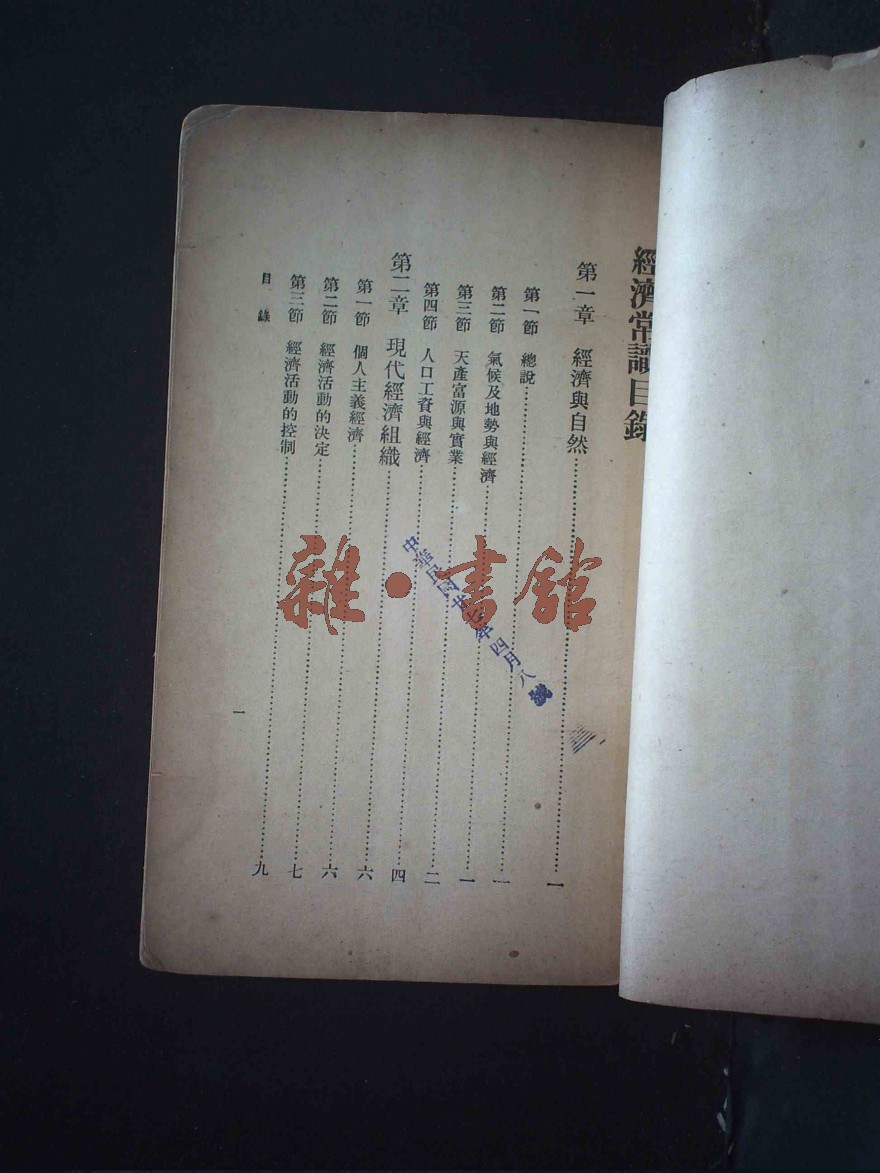 經濟常識目錄
第一章 經濟與自然……一
第一節 總說……一
第二節 氣候及地勢與經濟……一
第三節 天產富源與實業……二
第四節 人口工資與經濟……四
第二章 現代經濟組織……六
第一節 個人主義經濟……六
第二節 經濟活動的決定……七
第三節 經濟活動的控制……九
目錄
一
中華民國廿七年四月八
雜·書館